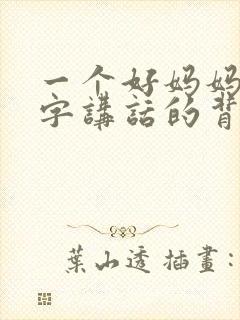 一个好妈妈
字講話的背
葉山透 插畫：